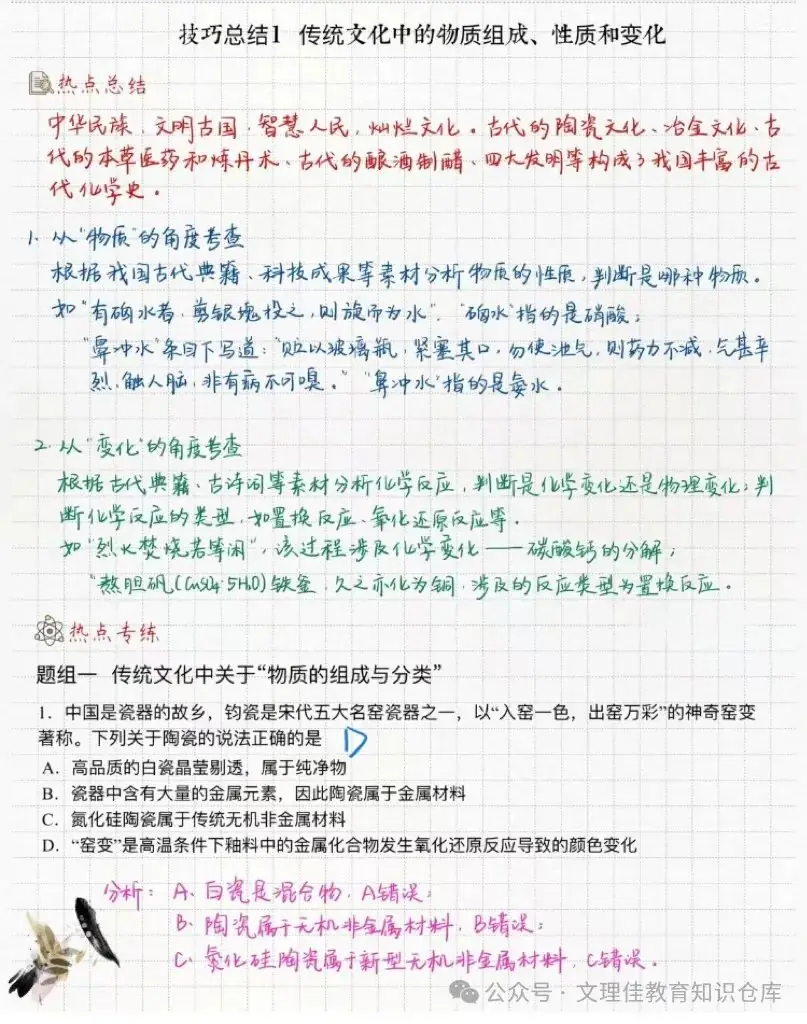 技巧总结1 传统文化中的物质组成、性质和变化
热点总结
中华民族，文明古国，智慧人民，灿烂文化。古代的陶瓷文化、冶金文化、古
代的本草医药和炼丹术、古代的酿酒制醋、四大发明等构成了我国丰富的古
代化学史。
1. 从“物质”的角度考查
根据我国古代典籍、科技成果等素材分析物质的性质，判断是哪种物质。
如“有硇水者，剪银塊投之，则旋而为水”，“硇水”指的是硝酸；
“鼻冲水”条目下写道：“贮以玻璃瓶，紧塞其口，勿使泄气，则药力不减，气甚辛
烈，触人脑，非有病不可嗅。”“鼻冲水”指的是氨水。
2. 从“变化”的角度考查
根据古代典籍、古诗词等素材分析化学反应，判断是化学变化还是物理变化；判
断化学反应的类型，如置换反应、氧化还原反应等。
如“烈火焚烧若等闲”，该过程涉及化学变化——碳酸钙的分解；
“熬胆矾(CuSO4·5H2O)铁釜，久之亦化为铜，涉及的反应类型为置换反应。
热点专练
题组一 传统文化中关于“物质的组成与分类”
1．中国是瓷器的故乡，钧瓷是宋代五大名窑瓷器之一，以“入窑一色，出窑万彩”的神奇窑变
著称。下列关于陶瓷的说法正确的是 D
A．高品质的白瓷晶莹剔透，属于纯净物
B．瓷器中含有大量的金属元素，因此陶瓷属于金属材料
C．氮化硅陶瓷属于传统无机非金属材料
D．“窑变”是高温条件下釉料中的金属化合物发生氧化还原反应导致的颜色变化
分析：A、白瓷是混合物，A错误；
B、陶瓷属于无机非金属材料，B错误；
C、氮化硅陶瓷属于新型无机非金属材料，C错误。
公众号·文理佳教育知识仓库